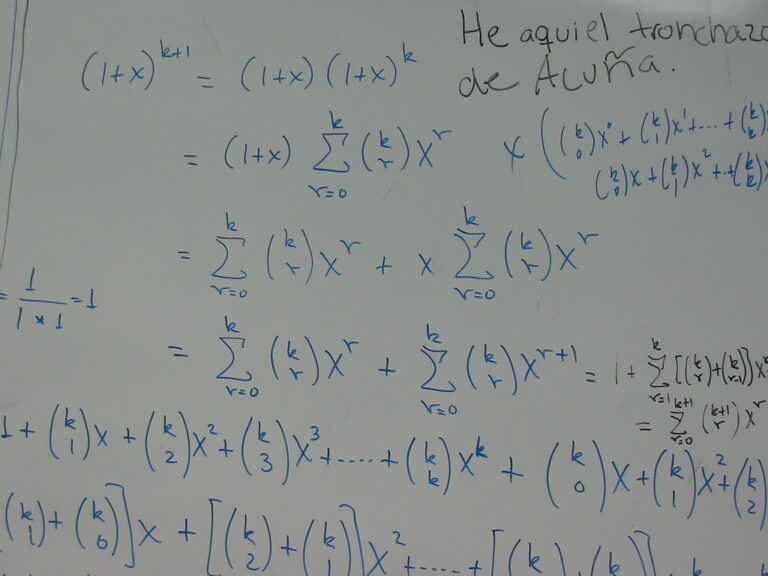 He aquiel tronchazo
de Acuña.
(1+x)^{k+1} = (1+x) (1+x)^k
= (1+x) \sum_{r=0}^{k} \binom{k}{r} x^r
x ( \binom{k}{0} x^0 + \binom{k}{1} x^1 + ... + \binom{k}{k}
\binom{k}{0} x + \binom{k}{1} x^2 + ... + \binom{k}{k}
= \sum_{r=0}^{k} \binom{k}{r} x^r + x \sum_{r=0}^{k} \binom{k}{r} x^r
= \frac{1}{1*1} = 1
= \sum_{r=0}^{k} \binom{k}{r} x^r + \sum_{r=0}^{k} \binom{k}{r} x^{r+1} = 1 + \sum_{r=1}^{k} [ \binom{k}{r} + \binom{k}{r-1} ] x
= \sum_{r=0}^{k+1} \binom{k+1}{r} x^r
1 + \binom{k}{1} x + \binom{k}{2} x^2 + \binom{k}{3} x^3 + ..... + \binom{k}{k} x^k + \binom{k}{0} x + \binom{k}{1} x^2 + \binom{k}{2}
\binom{k}{1} + \binom{k}{0} ] x + [ \binom{k}{2} + \binom{k}{1} ] x^2 + ..... + [